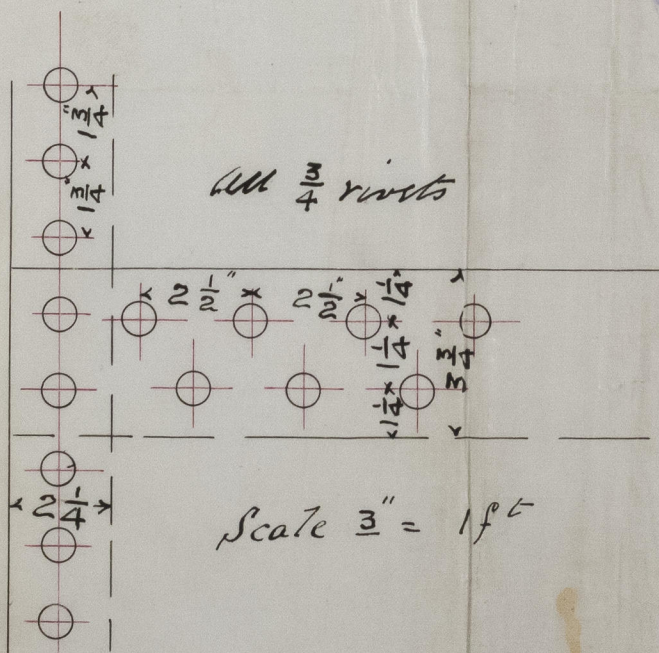 1 3/4"
1 3/4"
All 3/4 rivets
2 1/2"
2 1/2"
1 1/4"
1 1/4
1 1/4
3 3/4"
2 1/4
Scale 3" = 1ft